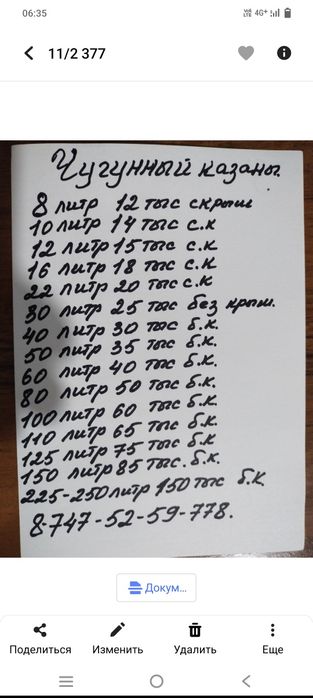 06:35
4G+
11/2 377
Чугунный казаны.
8 литр 12 тыс с крыш
10 литр 14 тыс с.к
12 литр 15 тыс с.к
16 литр 18 тыс с.к
22 литр 20 тыс с.к
30 литр 25 тыс без крыш.
40 литр 30 тыс б.к.
50 литр 35 тыс б.к.
60 литр 40 тыс б.к.
80 литр 50 тыс б.к.
100 литр 60 тыс б.к.
110 литр 65 тыс б.к.
125 литр 75 тыс б.к
150 литр 85 тыс. б.к.
225-250 литр 150 тыс б.к.
8-747-52-59-778.
Докум...
Поделиться Изменить Удалить Еще